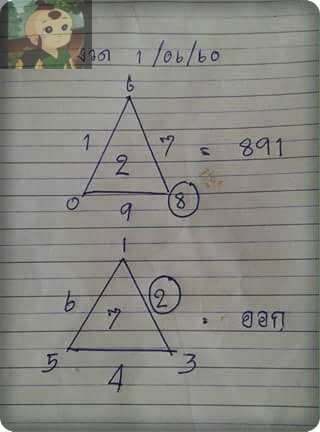 งวด 1/06/60
6
1 2 7 = 891
0 9 8
1
6 7 2 . ออก
5 4 3